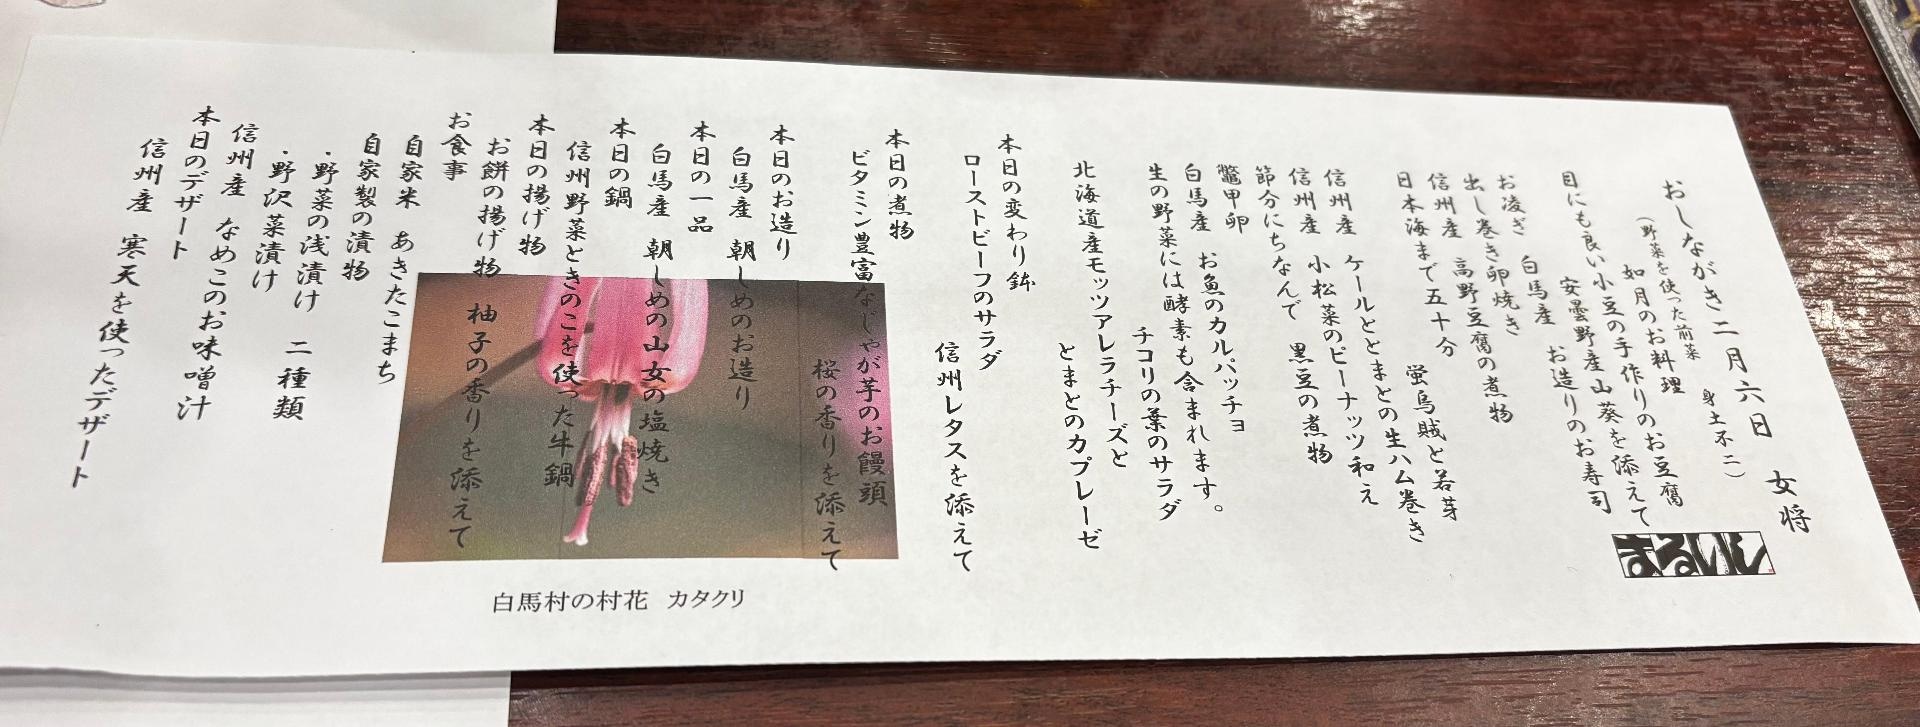 おしながき二月六日　女将
（野菜を使った前菜　身土不二）
如月のお料理
目にも良い小豆の手作りのお豆腐
安曇野産山葵を添えて
お凌ぎ　白馬産　お造りのお寿司
出し巻き卵焼き
信州産　高野豆腐の煮物
日本海まで五十分　蛍烏賊と若芽
信州産　ケールととまとの生ハム巻き
信州産　小松菜のピーナッツ和え
節分にちなんで　黒豆の煮物
鼈甲卵
白馬産　お魚のカルパッチョ
生の野菜には酵素も含まれます。
チコリの葉のサラダ
北海道産モッツアレラチーズと
とまとのカプレーゼ
本日の変わり鉢
ローストビーフのサラダ
信州レタスを添えて
本日の煮物
ビタミン豊富なじゃが芋のお饅頭
桜の香りを添えて
本日のお造り
白馬産　朝しめのお造り
本日の一品
白馬産　朝しめの山女の塩焼き
本日の鍋
信州野菜ときのこを使った牛鍋
本日の揚げ物
お餅の揚げ物　柚子の香りを添えて
お食事
自家米　あきたこまち
自家製の漬物
・野菜の浅漬け　二種類
・野沢菜漬け
信州産　なめこのお味噌汁
本日のデザート
信州産　寒天を使ったデザート
まるいし
白馬村の村花　カタクリ